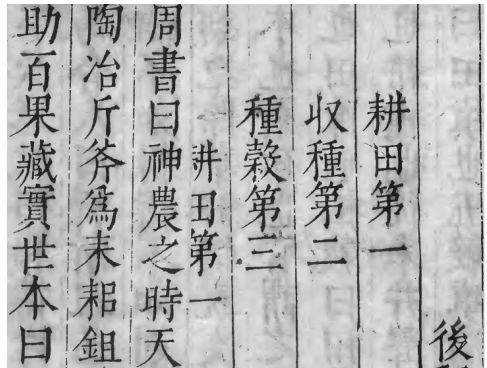 後
耕田第一
収種第二
種榖第三
耕田第一
周書曰神農之時天
陶冶斤斧爲耒耜鉏
助百果藏實世本曰